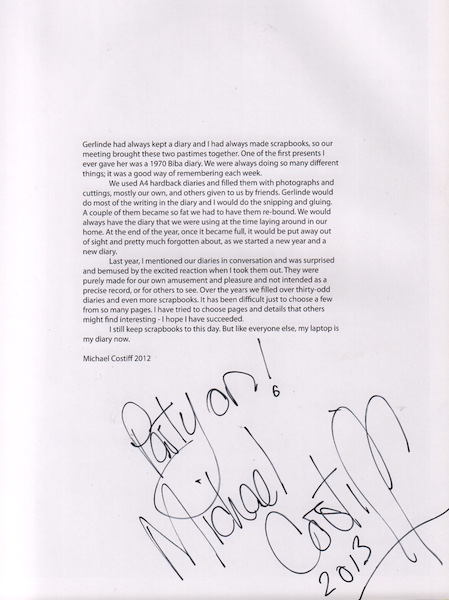 Gerlinde had always kept a diary and I had always made scrapbooks, so our
meeting brought these two pastimes together. One of the first presents I
ever gave her was a 1970 Biba diary. We were always doing so many different
things; it was a good way of remembering each week.
We used A4 hardback diaries and filled them with photographs and
cuttings, mostly our own, and others given to us by friends. Gerlinde would
do most of the writing in the diary and I would do the snipping and gluing.
A couple of them became so fat we had to have them re-bound. We would
always have the diary that we were using at the time laying around in our
home. At the end of the year, once it became full, it would be put away out
of sight and pretty much forgotten about, as we started a new year and a
new diary.
Last year, I mentioned our diaries in conversation and was surprised
and bemused by the excited reaction when I took them out. They were
purely made for our own amusement and pleasure and not intended as a
precise record, or for others to see. Over the years we filled over thirty-odd
diaries and even more scrapbooks. It has been difficult just to choose a few
from so many pages. I have tried to choose pages and details that others
might find interesting - I hope I have succeeded.
I still keep scrapbooks to this day. But like everyone else, my laptop is
my diary now.
Michael Costiff 2012
Party on!
Michael
Costiff
2013